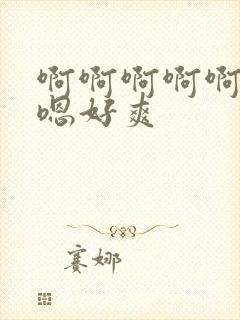 啊啊啊啊啊
嗯好爽
赛娜